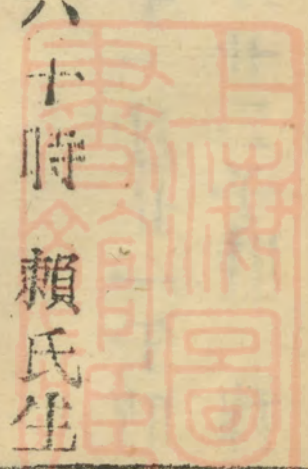 十時 賴氏生
上海圖
書館藏